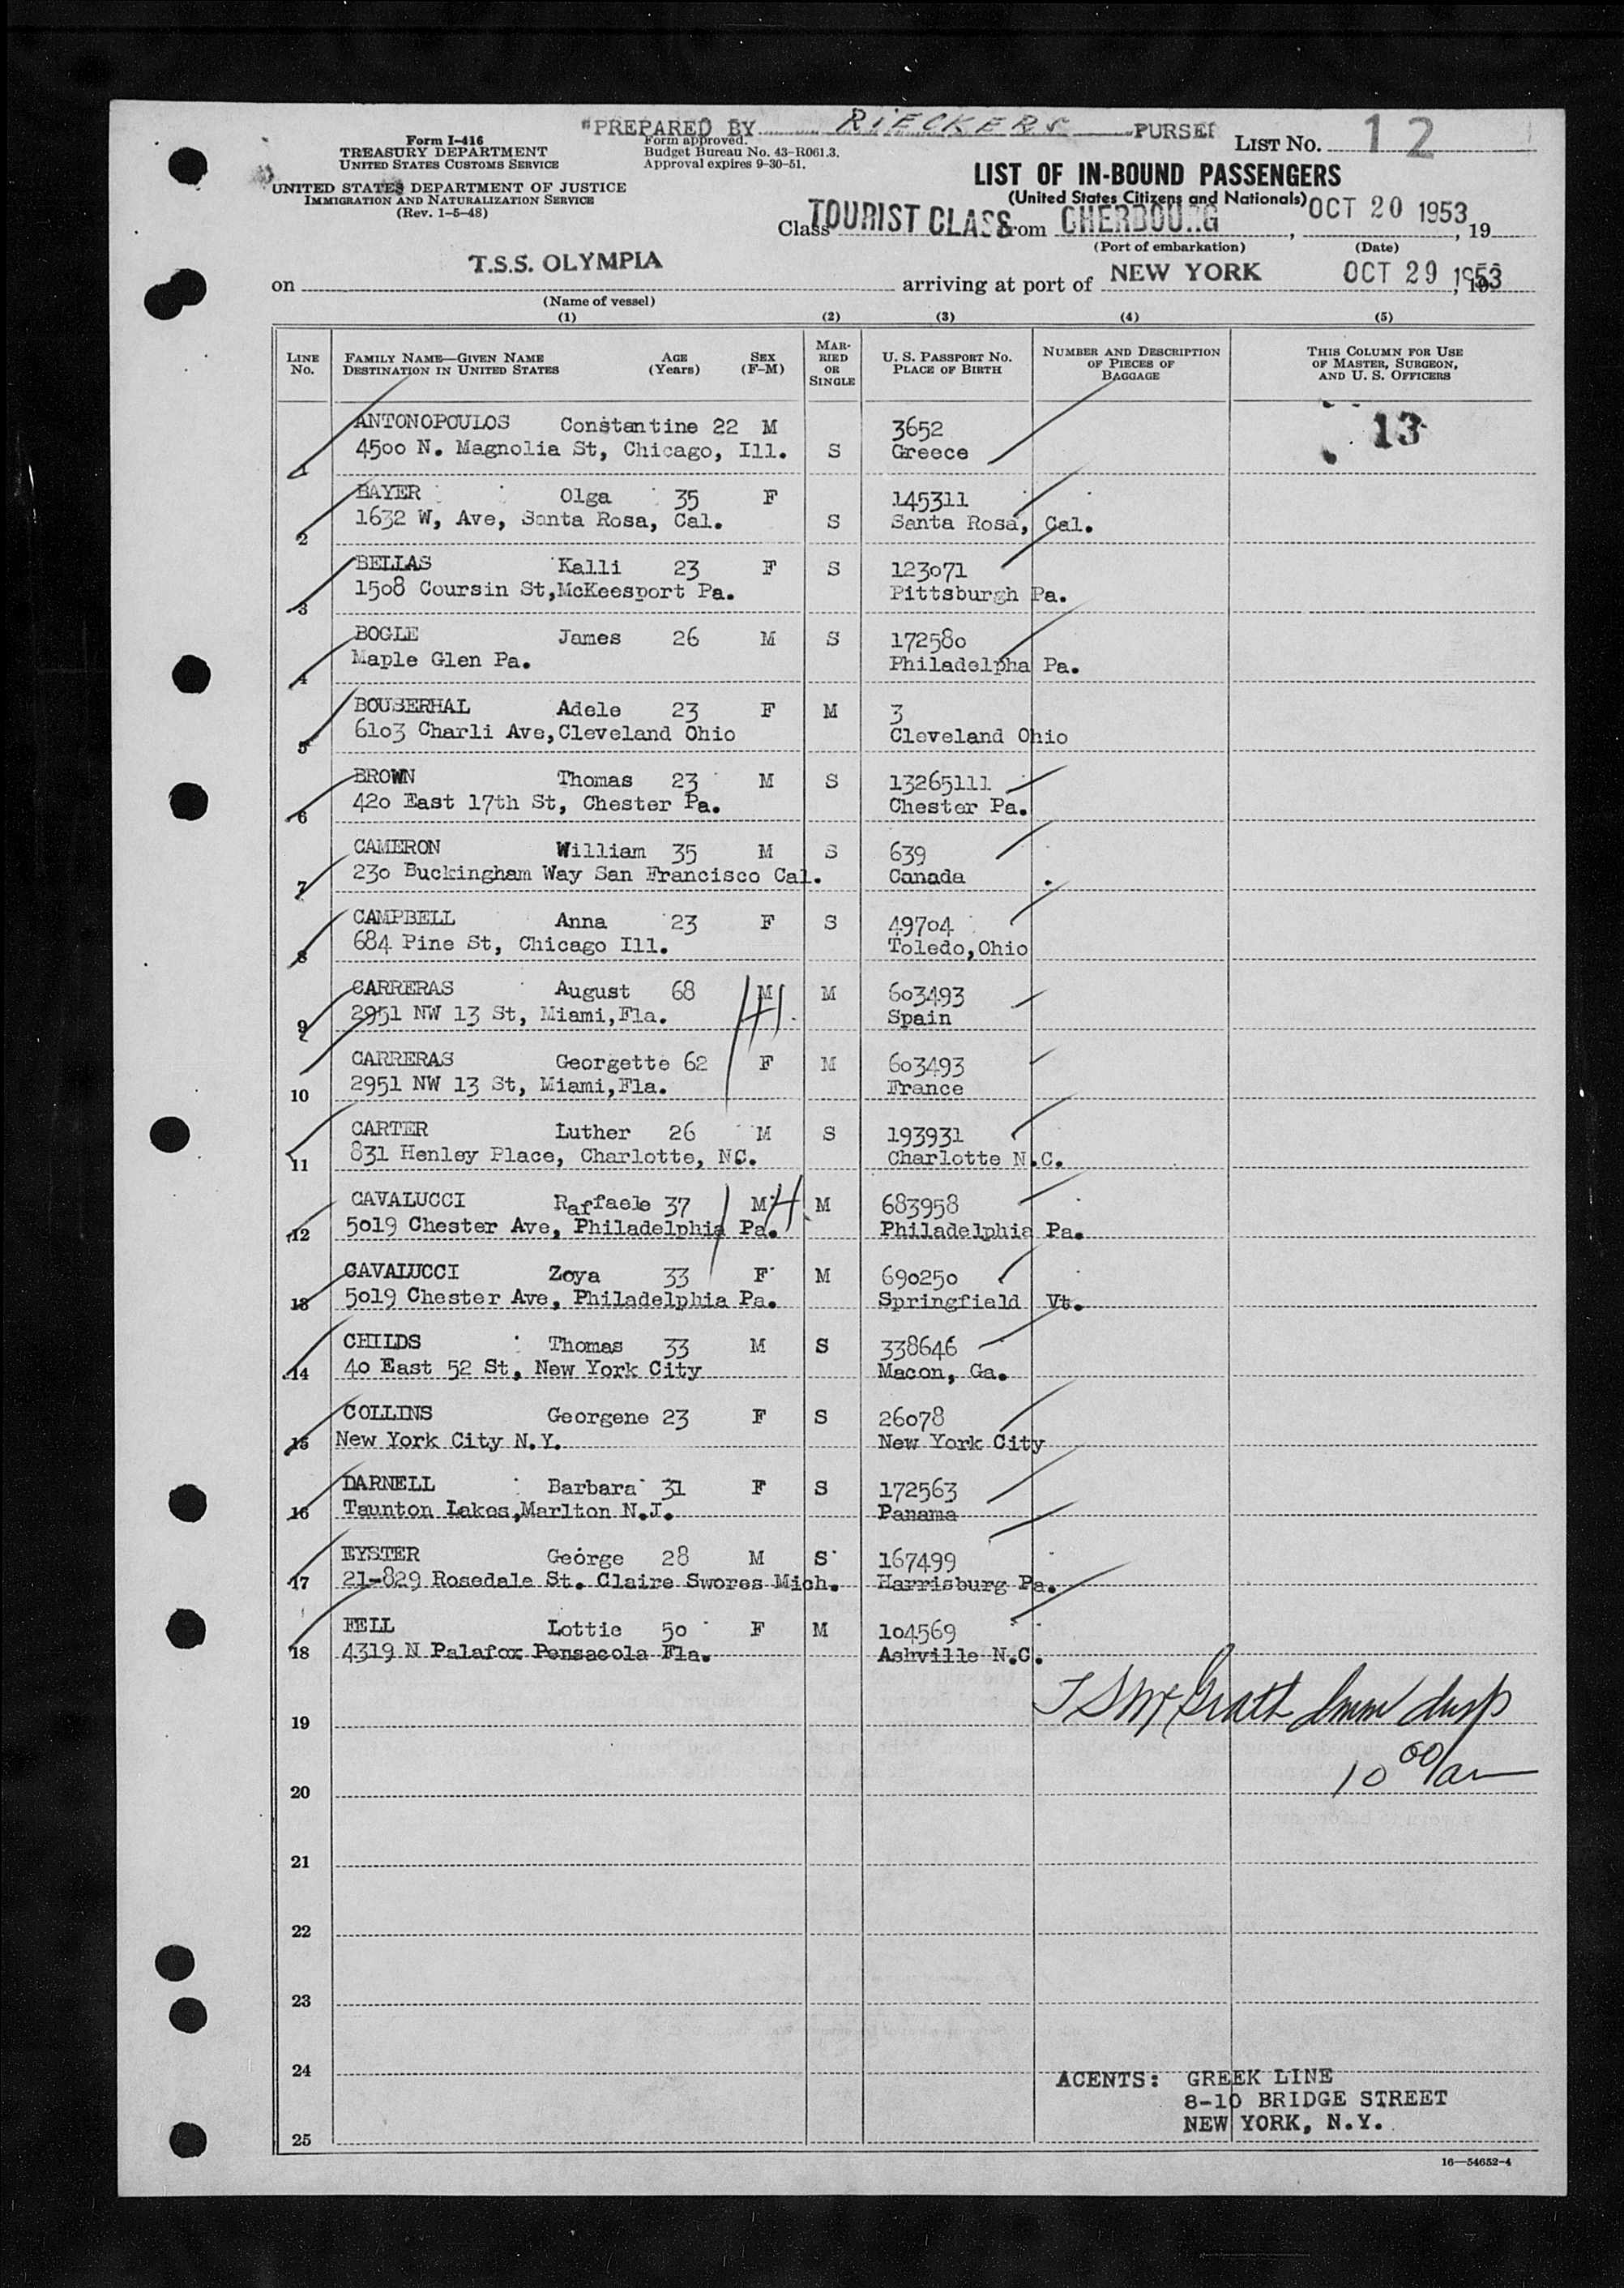 "PREPARED BY RIECKERS PURSER
LIST No. 12
Form I-416
TREASURY DEPARTMENT
UNITED STATES CUSTOMS SERVICE
Form approved.
Budget Bureau No. 43-R061.3.
Approval expires 9-30-51.
UNITED STATES DEPARTMENT OF JUSTICE
IMMIGRATION AND NATURALIZATION SERVICE
(Rev. 1-5-48)
LIST OF IN-BOUND PASSENGERS
(United States Citizens and Nationals)
Class TOURIST CLASS from CHERBOURG, OCT 20 1953, 19
(Port of embarkation) (Date)
on T.S.S. OLYMPIA arriving at port of NEW YORK OCT 29 1953, 19
(Name of vessel)
(1) (2) (3) (4) (5)
LINE No. FAMILY NAME—GIVEN NAME DESTINATION IN UNITED STATES AGE (Years) SEX (F-M) MARRIED OR SINGLE U. S. PASSPORT No. PLACE OF BIRTH NUMBER AND DESCRIPTION OF PIECES OF BAGGAGE THIS COLUMN FOR USE OF MASTER, SURGEON, AND U. S. OFFICERS
ANTONOPOULOS Constantine 22 M 3652 13
1 4500 N. Magnolia St, Chicago, Ill. S Greece
BAYER Olga 35 F 145311
2 1632 W, Ave, Santa Rosa, Cal. S Santa Rosa, Cal.
BELLAS Kalli 23 F S 123071
3 1508 Coursin St,McKeesport Pa. Pittsburgh Pa.
BOGLE James 26 M S 172580
4 Maple Glen Pa. Philadelpha Pa.
BOUSERHAL Adele 23 F M 3
5 6103 Charli Ave,Cleveland Ohio Cleveland Ohio
BROWN Thomas 23 M S 13265111
6 420 East 17th St, Chester Pa. Chester Pa.
CAMERON William 35 M S 639
7 230 Buckingham Way San Francisco Cal. Canada
CAMPBELL Anna 23 F S 49704
8 684 Pine St, Chicago Ill. Toledo,Ohio
CARRERAS August 68 M M 603493
9 2951 NW 13 St, Miami,Fla. Spain
CARRERAS Georgette 62 F M 603493
10 2951 NW 13 St, Miami,Fla. France
CARTER Luther 26 M S 193931
11 831 Henley Place, Charlotte, NC. Charlotte N.C.
CAVALUCCI Raffaele 37 M M 683958
12 5019 Chester Ave, Philadelphia Pa. Philadelphia Pa.
CAVALUCCI Zoya 33 F M 690250
13 5019 Chester Ave, Philadelphia Pa. Springfield Vt.
CHILDS Thomas 33 M S 338646
14 40 East 52 St, New York City Macon, Ga.
COLLINS Georgene 23 F S 26078
15 New York City N.Y. New York City
DARNELL Barbara 31 F S 172563
16 Taunton Lakes,Marlton N.J. Panama
EYSTER George 28 M S 167499
17 21-829 Rosedale St. Claire Swores Mich. Harrisburg Pa.
FELL Lottie 50 F M 104569
18 4319 N Palafox Pensacola Fla. Ashville N.C.
19 T S McGrath Imm Insp
20 10 00/am
21
22
23
24 AGENTS: GREEK LINE
8-10 BRIDGE STREET
25 NEW YORK, N.Y.
16—54652-4